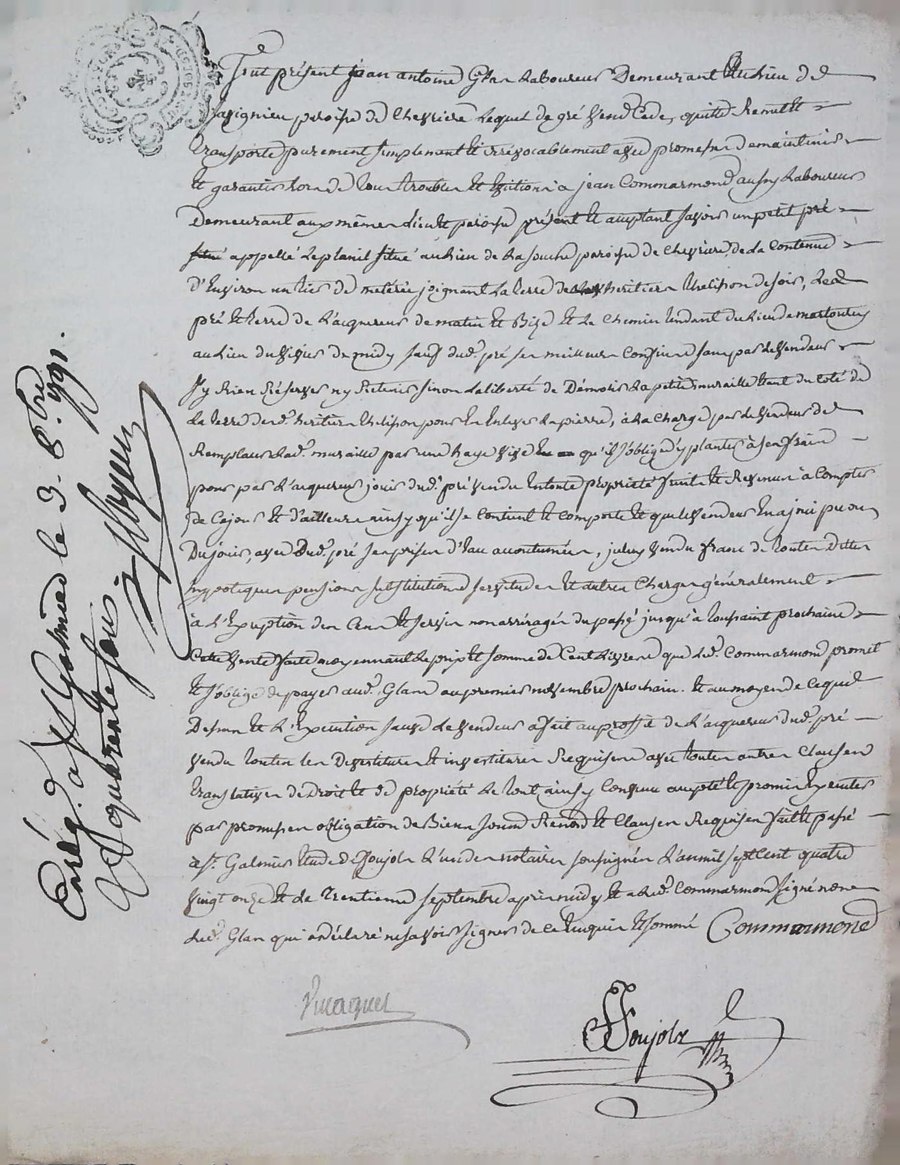 fut présent jean antoine Glas Laboureur Demeurant Au Lieu de
paroisse de Chevriere Lequel de gré vend Cede, quitte Remet Et
transporte purement simplement Et irrévocablement avec promesse de maintenir
Et garantir de tous troubles Et Evictions à jean Commarmond aussy Laboureur
Demeurant aux mêmes Lieu Et paroisse présent Et acceptant savoir un petit pré
appellé Le planil situé au Lieu de La souche paroisse de Chevriere, de La Contenue
d'Environ un tier de meterée joignant La terre des heritier thelision de soir, Le
pré Et terre de L'acquereur de matin Et Bize Et Le Chemin tendant du Lieu de
au Lieu du de midy sauf dud. pré ses meilleurs Confins sans par Le vendeur
sy Rien Réserver ny Retenir sinon La liberté de Démolir La petite muraille Etant du Coté de
La terre desd. heritier thelision pour En Enlever La pierre, à La Charge par Le vendeur de
Remplacer Lad. muraille par une haye vive qu'il s'oblige d'y planter à ses frais
pour par L'acquereur jouir dud. pré vendu En toute propriété fruits Et Revenus à Compter
de Ce jour Et d'ailleurs ainsy qu'il se Contient Et Comporte Et que Le vendeur En a joui pu ou
Du jouir, avec Dud. pré ses prises d'Eau accoutumées, icelluy vendu franc de toutes Dettes
hypoteques pensions substitutions servitudes Et autres Charges généralement
à L'Exception des Cens Et servis non arréragés du passé jusqu'à toussaint prochaine
Cette vente faite moyennant Le prix Et somme de Cent Livres que led. Commarmond promet
Et s'oblige de payer aud. Glas au premier novembre prochain. Et au moyen de Ce que
Dessus Et L'Execution sauve Le vendeur a fait au proffit de L'acquereur dud. pré
vendu toutes Les Devestitures Et investitures Requises avec toutes autres Clauses
translatives de Droit Et de propriété Le tout ainsy Convenu accepté Et promis Executer
par promesses obligation de Biens soumis Renond. Et Clauses Requises fait Et passé
à St. Galmier Etude de Soujols L'un des notaires soussignés L'an mil sept Cent quatre
vingt onze Et Le trentieme septembre après midy Et a led. Commarmond signé non
led. Glas qui a déclaré ne savoir signer de Ce Enquis Et sommé Commarmond
Soujols
Enrég. à St Galmier le 3. 8.bre 1791.
R quarante sous